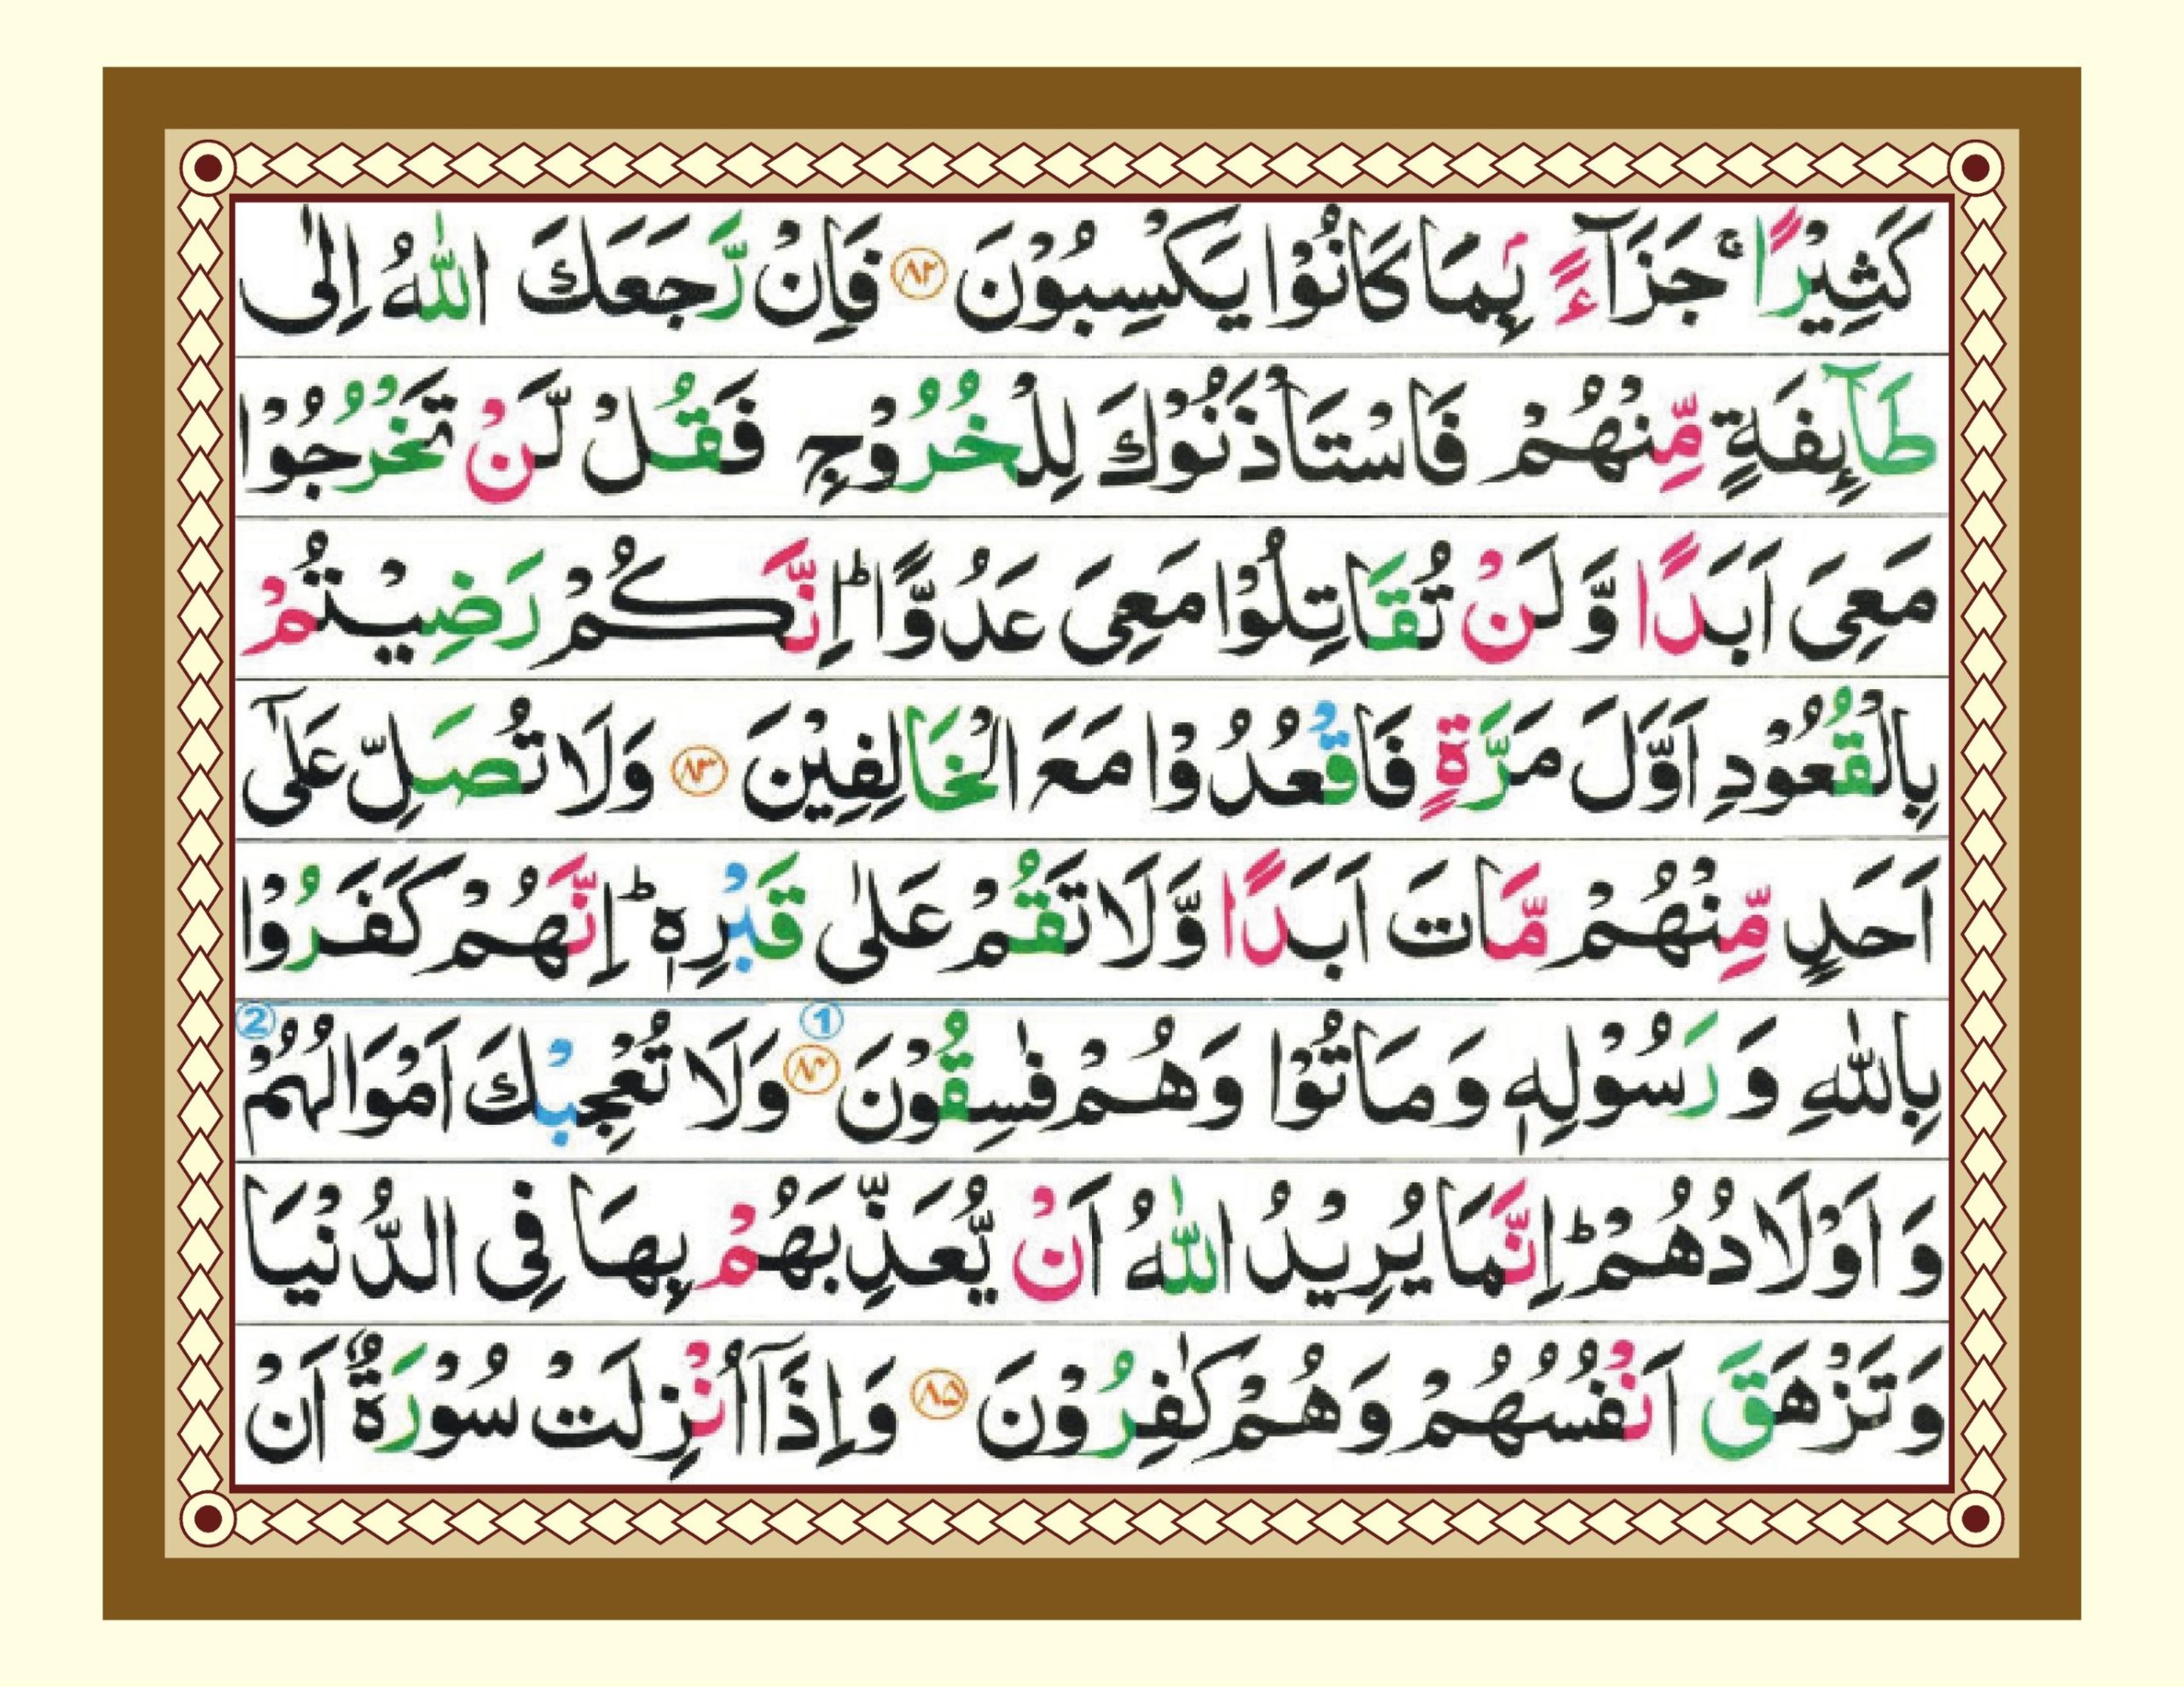 كَثِيْرًا ۚ جَزَآءًۢ بِمَا كَانُوْا يَكْسِبُوْنَ ﴿۸۲﴾ فَاِنْ رَّجَعَكَ اللّٰهُ اِلٰى
طَآىِٕفَةٍ مِّنْهُمْ فَاسْتَاْذَنُوْكَ لِلْخُرُوْجِ فَقُلْ لَّنْ تَخْرُجُوْا
مَعِىَ اَبَدًا وَّ لَنْ تُقَاتِلُوْا مَعِىَ عَدُوًّا ؕ اِنَّكُمْ رَضِيْتُمْ
بِالْقُعُوْدِ اَوَّلَ مَرَّةٍ فَاقْعُدُوْا مَعَ الْخَالِفِيْنَ ﴿۸۳﴾ وَلَا تُصَلِّ عَلٰٓى
اَحَدٍ مِّنْهُمْ مَّاتَ اَبَدًا وَّلَا تَقُمْ عَلٰى قَبْرِهٖ ؕ اِنَّهُمْ كَفَرُوْا
بِاللّٰهِ وَ رَسُوْلِهٖ وَمَاتُوْا وَهُمْ فٰسِقُوْنَ ﴿۸۴﴾ 1 وَلَا تُعْجِبْكَ اَمْوَالُهُمْ 2
وَ اَوْلَادُهُمْ ؕ اِنَّمَا يُرِيْدُ اللّٰهُ اَنْ يُّعَذِّبَهُمْ بِهَا فِى الدُّنْيَا
وَتَزْهَقَ اَنْفُسُهُمْ وَهُمْ كٰفِرُوْنَ ﴿۸۵﴾ وَاِذَآ اُنْزِلَتْ سُوْرَةٌ اَنْ